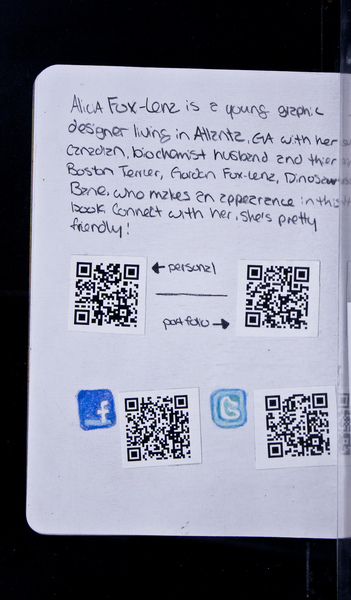 Alica Fox-Lenz is a young graphic
designer living in Atlanta, GA with her
Canadian, biochemist husband and thier
Boston Terrier, Gordon Fox-Lenz, Dinosaur
Bane, who makes an appearance in this
book. Connect with her, she's pretty
friendly!
←personal
portfolio→
f
t